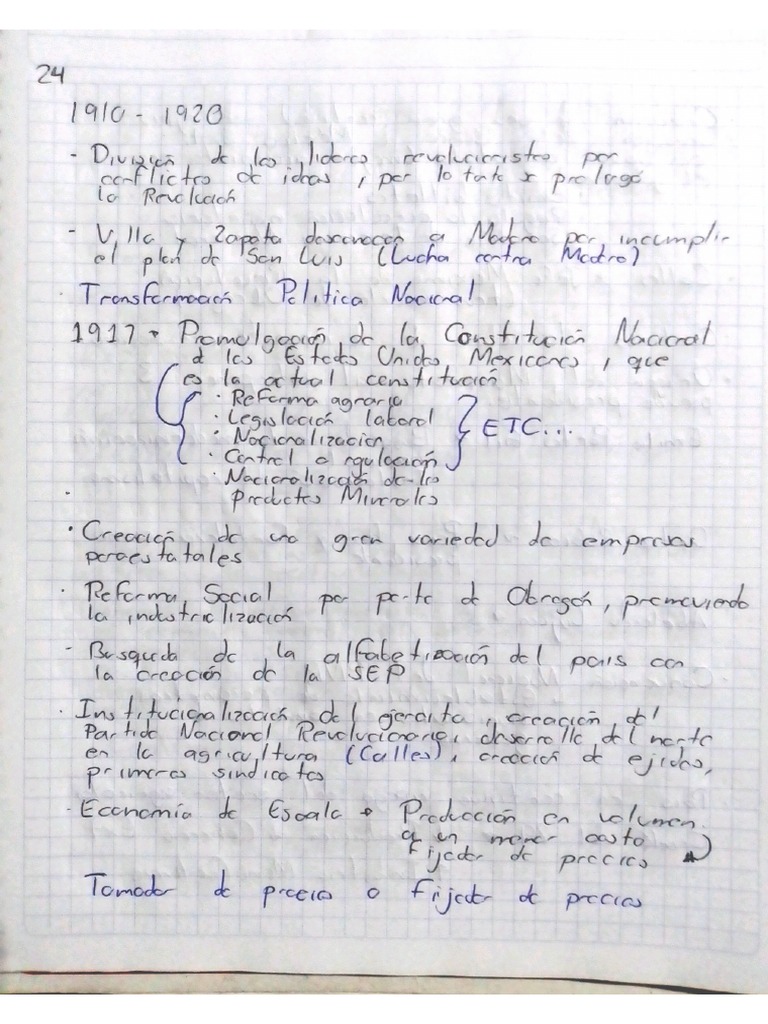 24
1910 - 1920
- División de los lideres revolucionistas por
conflictos de ideas, por lo tanto se prolongó
la Revolución
- Villa y Zapata desconocen a Madero por incumplir
el plan de San Luis (Lucha contra Madero)
· Transformación Politica Nacional
1917 • Promulgación de la Constitución Nacional
d los Estados Unidos Mexicanos, que
es la actual constitución
· Reforma agraria
· Legislación laboral
· Nacionalización
ETC...
· Control o regulación
· Nacionalización de los
productos Minerales
· Creación de una gran variedad de empresas
paraestatales
· Reforma Social por parte de Obregón, promoviendo
la industrialización
- Busqueda de la alfabetización del pais con
la creación de la SEP
· Institucionalización del ejercito, creación del
Partido Nacional Revolucionario, desarrollo del norte
en la agricultura (Calles), creación de ejidos,
primeros sindicatos
· Economía de Escala → Producción en volumen
a un menor costo
Fijador de precios
Tomador de precios o Fijador de precios